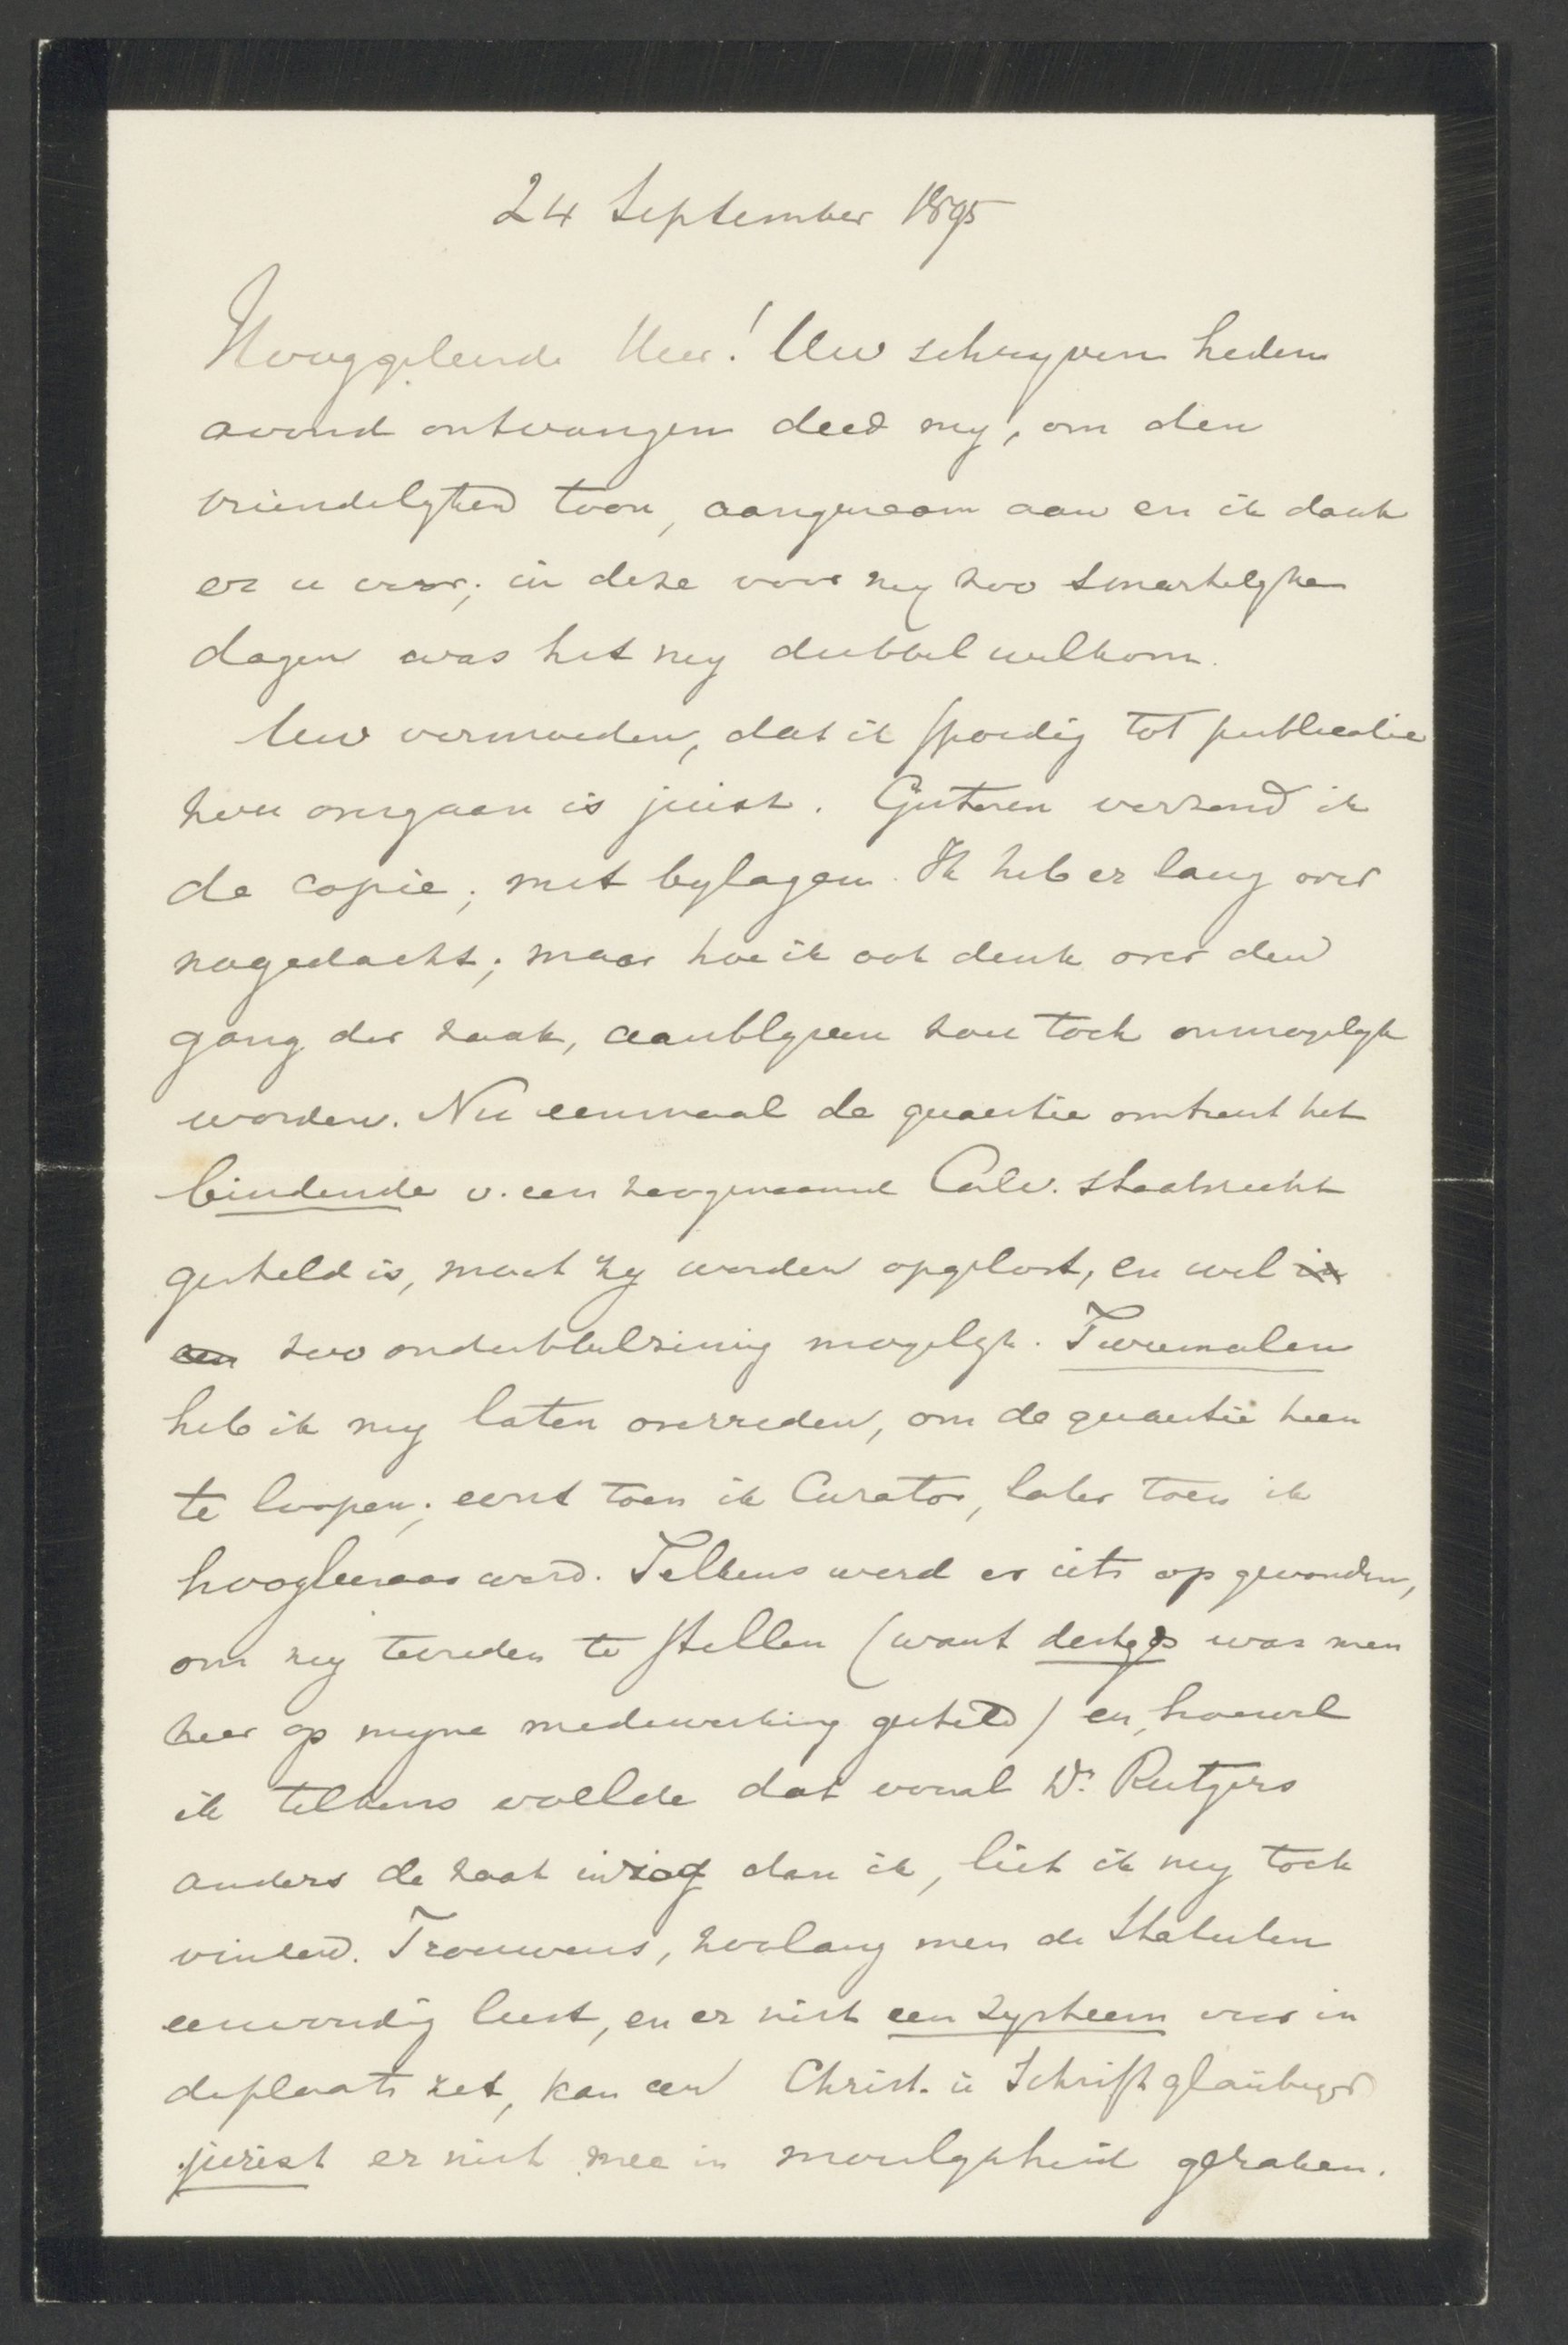 24 September 1895
Hooggeleerde Heer! Uw schryven heden
avond ontvangen deed my, om den
vriendelyken toon, aangenaam aan en ik dank
er u voor; in deze voor my zoo smartelyke
dagen was het my dubbel welkom.
Uw vermoeden, dat ik spoedig tot publicatie
zou overgaan is juist. Gisteren verzond ik
de copie; met bylagen. Ik heb er lang over
nagedacht; maar hoe ik ook denk over den
gang der zaak, aanblyven zou toch onmogelyk
worden. Nu eenmaal de quaestie omtrent het
bindende v. een zoogenaamd Calv. staatsrecht
gesteld is, moet zy worden opgelost, en wel in
een zoo ondubbelzinnig mogelyk. Tweemalen
heb ik my laten overreden, om de quaestie heen
te loopen; eerst toen ik Curator, later toen ik
hoogleeraar werd. Telkens werd er iets op gevonden,
om my tevreden te stellen (want destyds was men
zeer op myne medewerking gesteld) en, hoewel
ik telkens voelde dat vooral Dr. Rutgers
anders de zaak inzag dan ik, liet ik my toch
vinden. Trouwens, zoolang men de Statuten
eenvoudig leest, en er niet een systeem voor in
deplaats zet, kan een Christ. u Schriftgläubiger
jurist er niet mee in moeilykheid geraken.